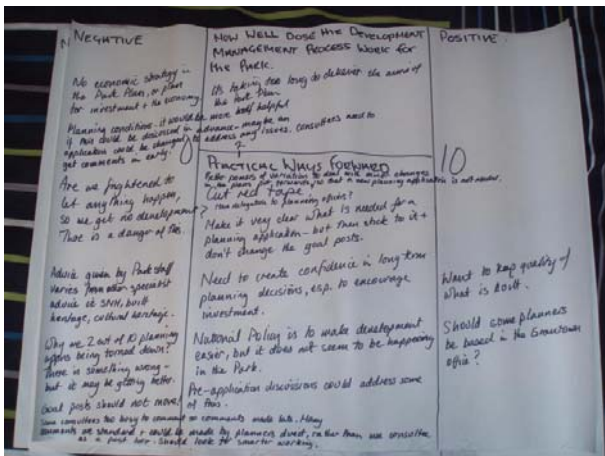 NEGATIVE
No economic strategy in
the Park Plan, or plan
for investment + the economy.
Planning conditions - it would be more helpful
if this could be discussed in advance - maybe an
application could be changed to address any issues. Consultees need to
get comments in early.
Are we frightened to
let anything happen,
so we get no development?
There is a danger of this.
Advice given by Park staff
varies from other specialist
advice ie SNH, built
heritage, cultural heritage.
Why are 2 out of 10 planning
being torned down?
There is something wrong -
but it may be getting better.
Goal posts should not move!
Some consultees too busy to comment or comments made late. Many
comments are standard + could be made by planners direct, rather than use consultee
as a post box. Should look to smarter working.
HOW WELL DOSE the DEVELOPMENT
MANAGEMENT PROCESS WORK FOR
the PARK.
It's taking too long to deliver the aims of
the Park Plan
PRACTICAL WAYS FORWARD
Better powers of variation to deal with minor changes
in plans so that a new planning application is not needed.
Cut red tape.
More delegation to planning officers?
Make it very clear what is needed for a
planning application - but then stick to it +
don't change the goal posts.
Need to create confidence in long term
planning decisions, esp. to encourage
investment.
National Policy is to make development
easier, but it does not seem to be happening
in the Park.
Pre-application discussions could address some
of this.
POSITIVE
10
Want to keep quality of
what is built.
Should some planners
be based in the Grantown
office?